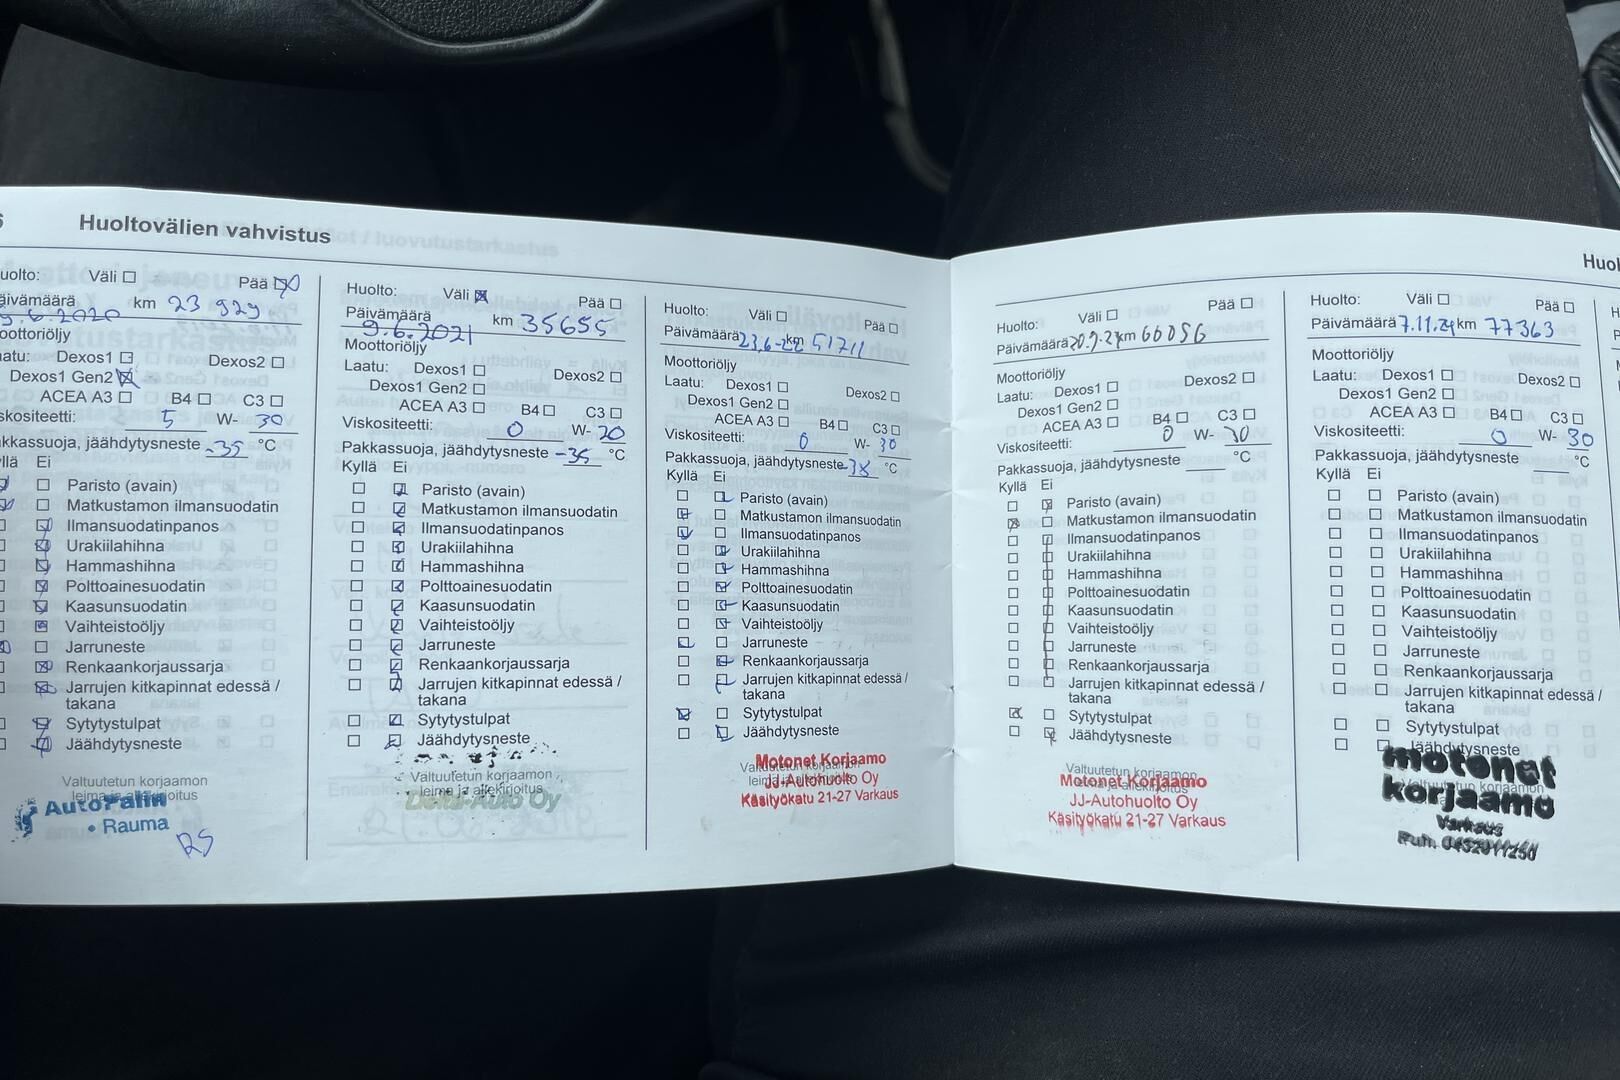 Huoltovälien vahvistus
Väli ☐ Pää ☒
km 23 929
9.6.2020
Dexos1 ☐ Dexos2 ☐
Dexos1 Gen2 ☒
ACEA A3 ☐ B4 ☐ C3 ☐
5 W- 30
jäähdytysneste -35 °C
Ei
Paristo (avain)
Matkustamon ilmansuodatin
Ilmansuodatinpanos
Urakiilahihna
Hammashihna
Polttoainesuodatin
Kaasunsuodatin
Vaihteistoöljy
Jarruneste
Renkaankorjaussarja
Jarrujen kitkapinnat edessä /
takana
Sytytystulpat
Jäähdytysneste
Valtuutetun korjaamon
leima ja allekirjoitus
AutoPalin
• Rauma
RS
Huolto: Väli ☒ Pää ☐
Päivämäärä km 35655
9.6.2021
Moottoriöljy
Laatu: Dexos1 ☐ Dexos2 ☐
Dexos1 Gen2 ☐
ACEA A3 ☐ B4 ☐ C3 ☐
Viskositeetti: 0 W- 20
Pakkassuoja, jäähdytysneste -35 °C
Kyllä Ei
Paristo (avain)
Matkustamon ilmansuodatin
Ilmansuodatinpanos
Urakiilahihna
Hammashihna
Polttoainesuodatin
Kaasunsuodatin
Vaihteistoöljy
Jarruneste
Renkaankorjaussarja
Jarrujen kitkapinnat edessä /
takana
Sytytystulpat
Jäähdytysneste
Valtuutetun korjaamon
leima ja allekirjoitus
Auto Oy
Huolto: Väli ☐ Pää ☐
Päivämäärä 23.6-22 km 51711
Moottoriöljy
Laatu: Dexos1 ☐ Dexos2 ☐
Dexos1 Gen2 ☐
ACEA A3 ☐ B4 ☐ C3 ☐
Viskositeetti: 0 W- 30
Pakkassuoja, jäähdytysneste -38 °C
Kyllä Ei
Paristo (avain)
Matkustamon ilmansuodatin
Ilmansuodatinpanos
Urakiilahihna
Hammashihna
Polttoainesuodatin
Kaasunsuodatin
Vaihteistoöljy
Jarruneste
Renkaankorjaussarja
Jarrujen kitkapinnat edessä /
takana
Sytytystulpat
Jäähdytysneste
Motonet Korjaamo
JJ-Autohuolto Oy
Käsityökatu 21-27 Varkaus
Huolto: Väli ☐ Pää ☐
Päivämäärä km 66056
Moottoriöljy
Laatu: Dexos1 ☐ Dexos2 ☐
Dexos1 Gen2 ☐
ACEA A3 ☐ B4 ☐ C3 ☐
Viskositeetti: 0 W- 30
Pakkassuoja, jäähdytysneste °C
Kyllä Ei
Paristo (avain)
Matkustamon ilmansuodatin
Ilmansuodatinpanos
Urakiilahihna
Hammashihna
Polttoainesuodatin
Kaasunsuodatin
Vaihteistoöljy
Jarruneste
Renkaankorjaussarja
Jarrujen kitkapinnat edessä /
takana
Sytytystulpat
Jäähdytysneste
Valtuutetun korjaamon
Motonet Korjaamo
JJ-Autohuolto Oy
Käsityökatu 21-27 Varkaus
Huolto: Väli ☐ Pää ☐
Päivämäärä 7.11.24 km 77363
Moottoriöljy
Laatu: Dexos1 ☐ Dexos2 ☐
Dexos1 Gen2 ☐
ACEA A3 ☐ B4 ☐ C3 ☐
Viskositeetti: 0 W- 30
Pakkassuoja, jäähdytysneste °C
Kyllä Ei
Paristo (avain)
Matkustamon ilmansuodatin
Ilmansuodatinpanos
Urakiilahihna
Hammashihna
Polttoainesuodatin
Kaasunsuodatin
Vaihteistoöljy
Jarruneste
Renkaankorjaussarja
Jarrujen kitkapinnat edessä /
takana
Sytytystulpat
Jäähdytysneste
motonet
korjaamo
Varkaus